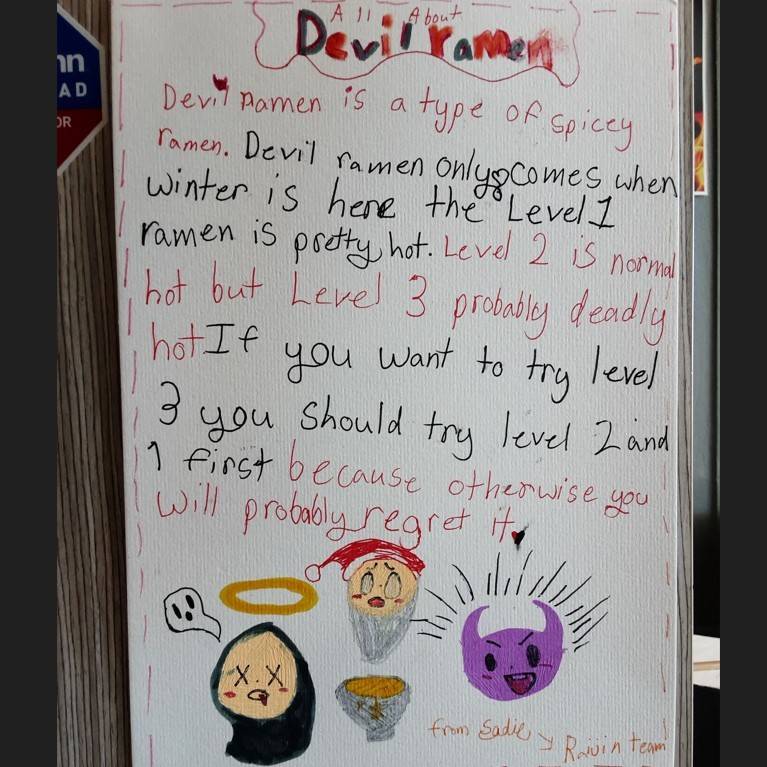 nn
AD
OR
All About
Devil ramen
Devil Ramen is a type of spicey
ramen. Devil ramen only comes when
winter is here the Level 1
ramen is pretty hot. Level 2 is normal
hot but Level 3 probably deadly
hot If you want to try level
3 you should try level 2 and
1 first because otherwise you
will probably regret it.
from Sadie
Raijin team